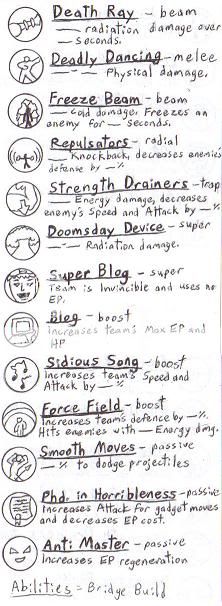 Death Ray - beam
__ radiation damage over
__ seconds.
Deadly Dancing - melee
__-__ Physical damage.
Freeze Beam - beam
__ cold damage. Freezes an
enemy for __ seconds.
Repulsators - radial
__ Knockback, decreases enemie's
defense by __%
Strength Drainers - trap
__ Energy damage, decreases
enemy's Speed and Attack by __%.
Doomsday Device - super
__-__ Radiation damage.
Super Blog - super
Team is Invincible and uses no
EP.
Blog - boost
increases team's Max EP and
HP
Sidious Song - boost
Increases team's Speed and
Attack by __%
Force Field - boost
Increases team's defence by __%.
Hits enemies with __ Energy dmg.
Smooth Moves - passive
__% to dodge projectiles
Phd. in Horribleness - passive
Increases Attack for gadget moves
and decreases EP cost.
Anti Master - passive
Increases EP regeneration
Abilities = Bridge Build